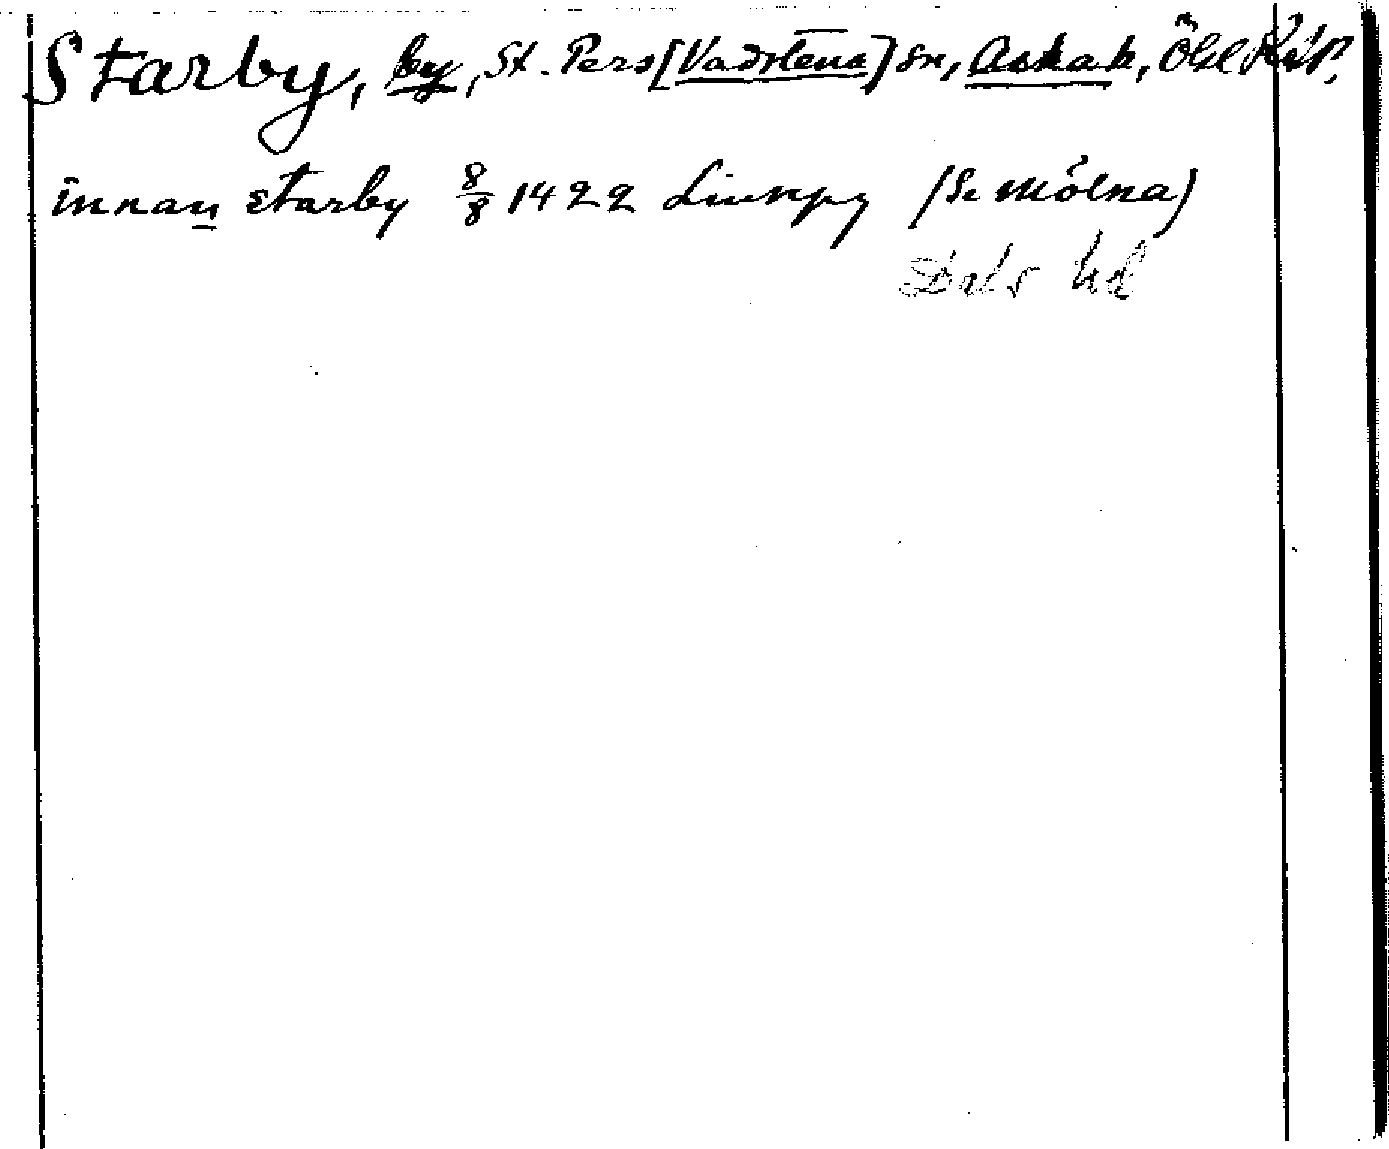 Starby, by, St. Pers [Vadstena] sn, Aska h, Ögl
innan starby 8/8 1422 Linkpg (St Mölna)
Dals hd